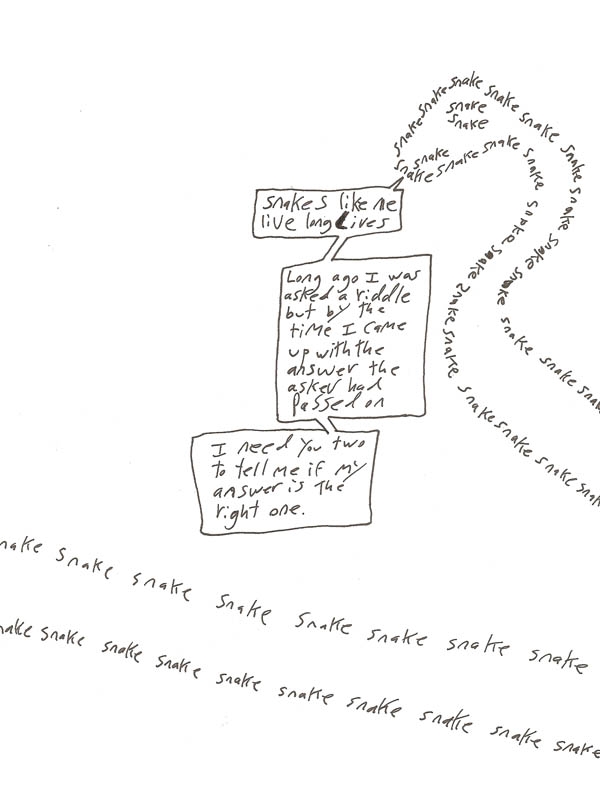 snake snake snake snake snake snake snake snake snake snake snake snake sna
snake
snake
snake snake snake snake snake snake snake snake snake snake snake snake snake snak
snakes like me
live long Lives
Long ago I was
asked a riddle
but by the
time I came
up with the
answer the
asker had
passed on
I need you two
to tell me if my
answer is the
right one.
nake snake snake snake snake snake snake snake
nake snake snake snake snake snake snake snake snake snake